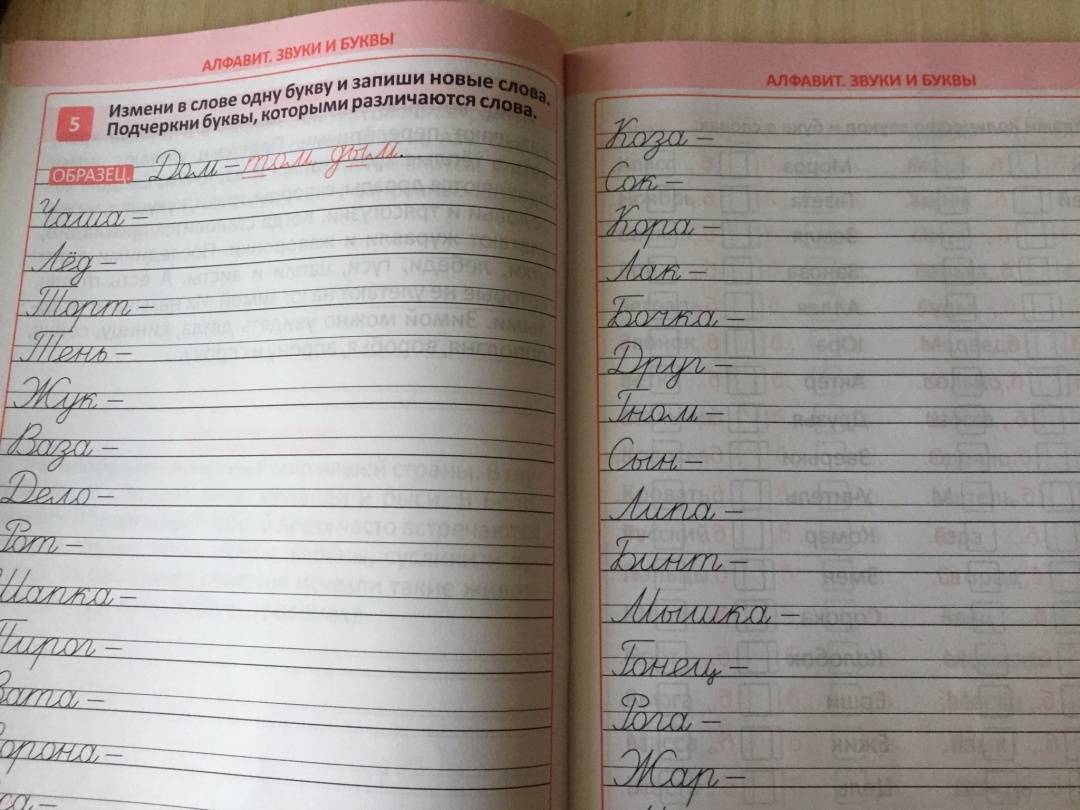 АЛФАВИТ. ЗВУКИ И БУКВЫ
5
Измени в слове одну букву и запиши новые слова.
Подчеркни буквы, которыми различаются слова.
ОБРАЗЕЦ. Дом – том, дым.
Чаша –
Лёд –
Торт –
Тень –
Жук –
Ваза –
Дело –
Рот –
Шапка –
Пирог –
Вата –
Ворона –
АЛФАВИТ. ЗВУКИ И БУКВЫ
Коза –
Сок –
Кора –
Лак –
Бочка –
Друг –
Гном –
Сын –
Липа –
Бинт –
Мышка –
Гонец –
Рога –
Жар –